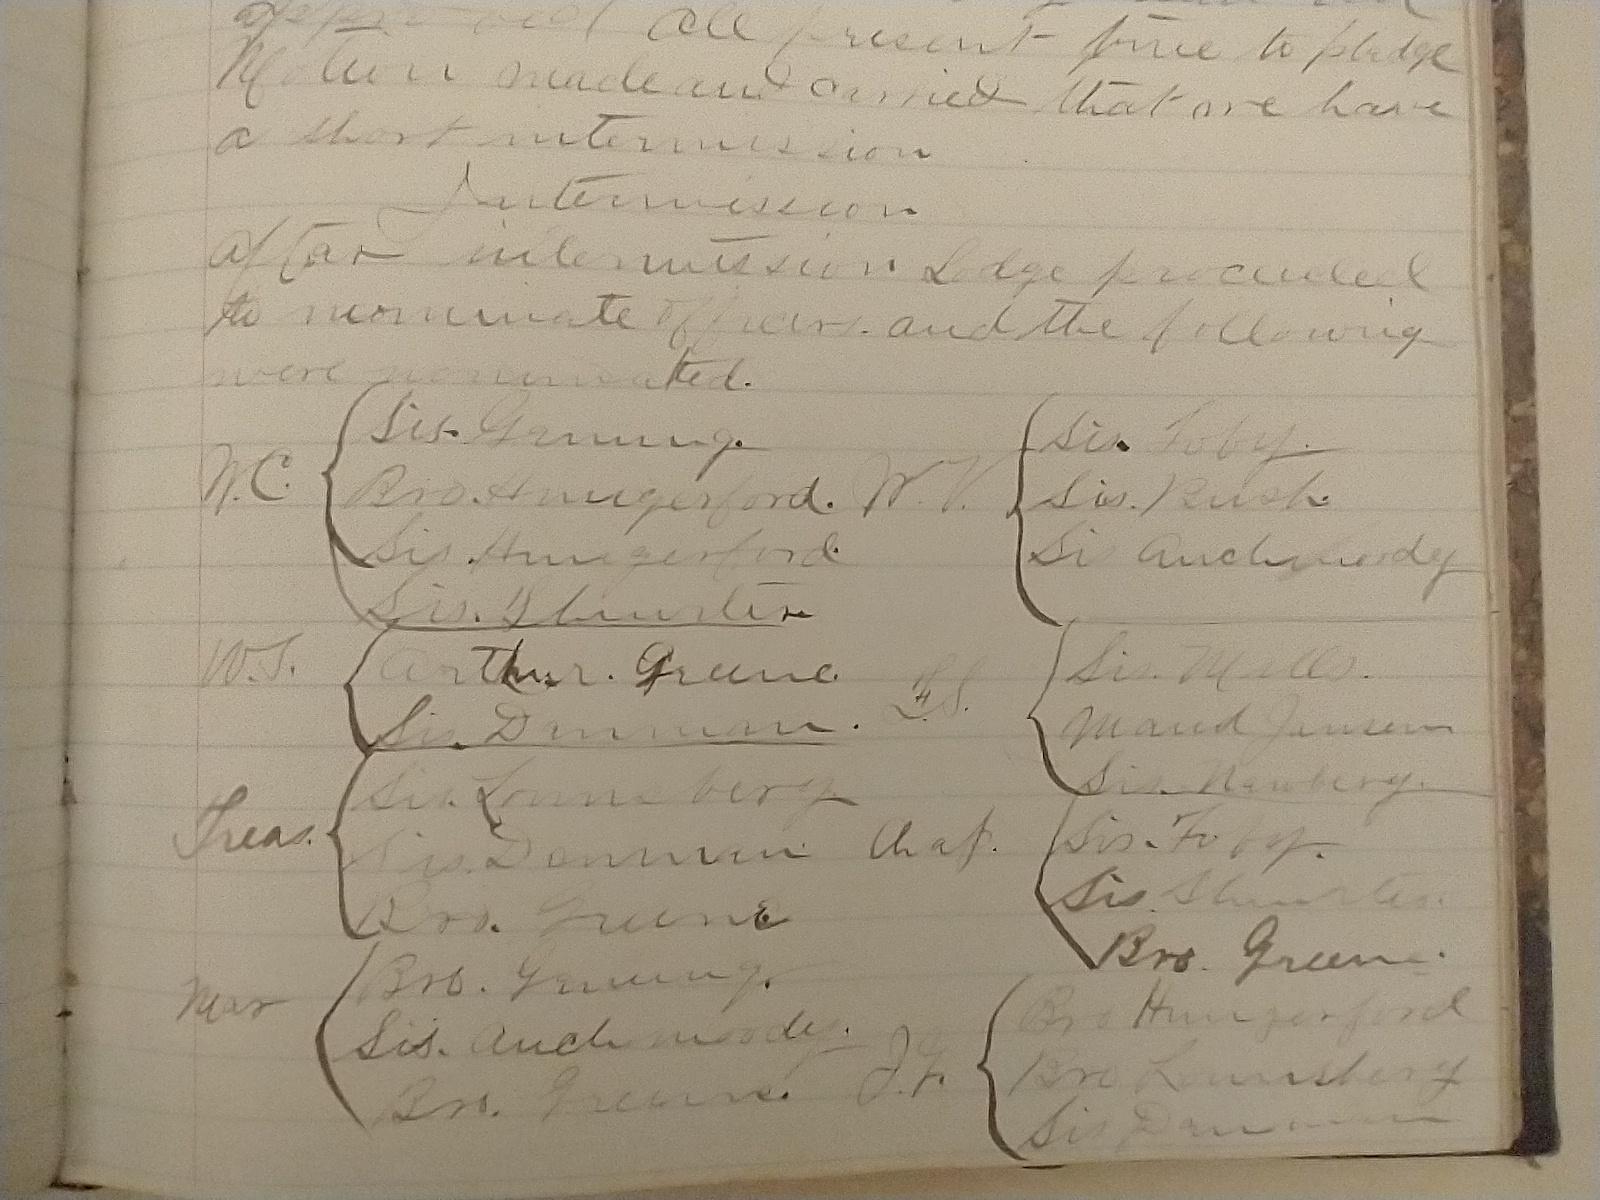 All present true to pledge
Motion made and carried that we have
a short intermission
Intermission
after intermission Lodge proceeded
to nominate officers. and the following
were nominated.
W.C. Sis. Genung.
Bro. Hungerford.
Sis. Hungerford
Sis.
W.V. Sis. Toby.
Sis. Rush.
Sis Auchmoody
W.S. Arthur. Greene
Sis. Denman.
F.S. Sis. Mills.
Maud Jensen
Sis. Newberry.
Treas. Sis. Lounsbery
Sis. Denman
Bro. Greene
Chap. Sis. Toby.
Sis.
Bro. Greene.
Mar Bro. Genung.
Sis. Auchmoody.
Bro. Greene.
Bro Hungerford
Bro Lounsbery
Sis Denman